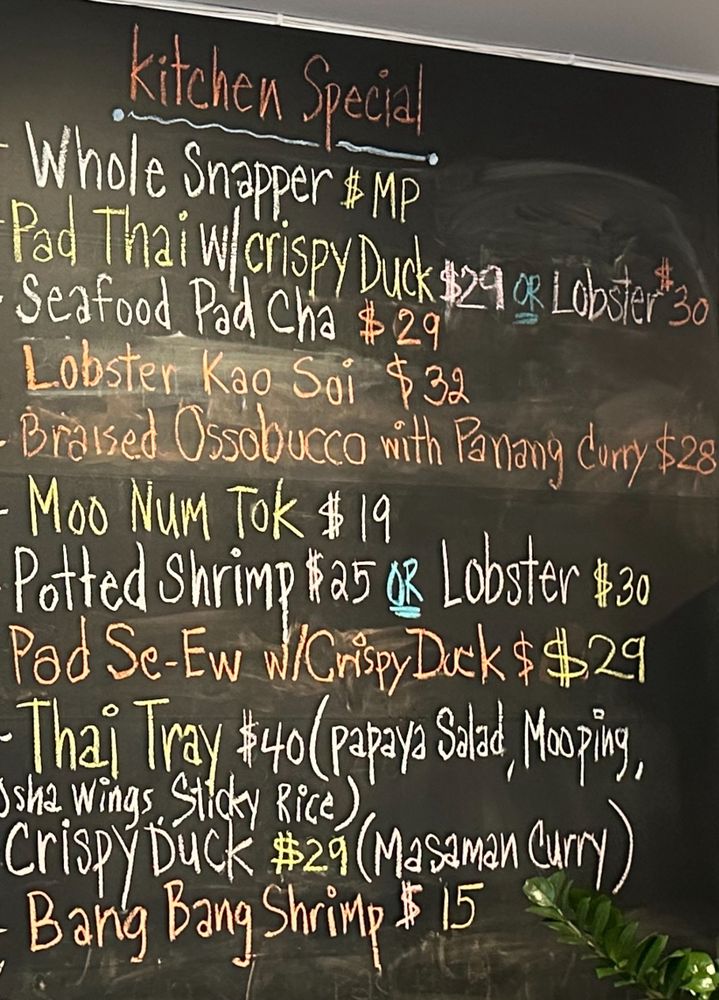 kitchen Special
- Whole Snapper $ MP
Pad Thai w/crispy Duck $29 OR Lobster $30
- Seafood Pad Cha $29
Lobster Kao Soi $32
- Braised Ossobucco with Panang Curry $28
- Moo Num Tok $19
- Potted Shrimp $25 OR Lobster $30
Pad Se-Ew w/Crispy Duck $ $29
- Thai Tray $40 (papaya Salad, Mooping,
Osha Wings, Sticky Rice)
Crispy Duck $29 (Masaman Curry)
- Bang Bang Shrimp $15